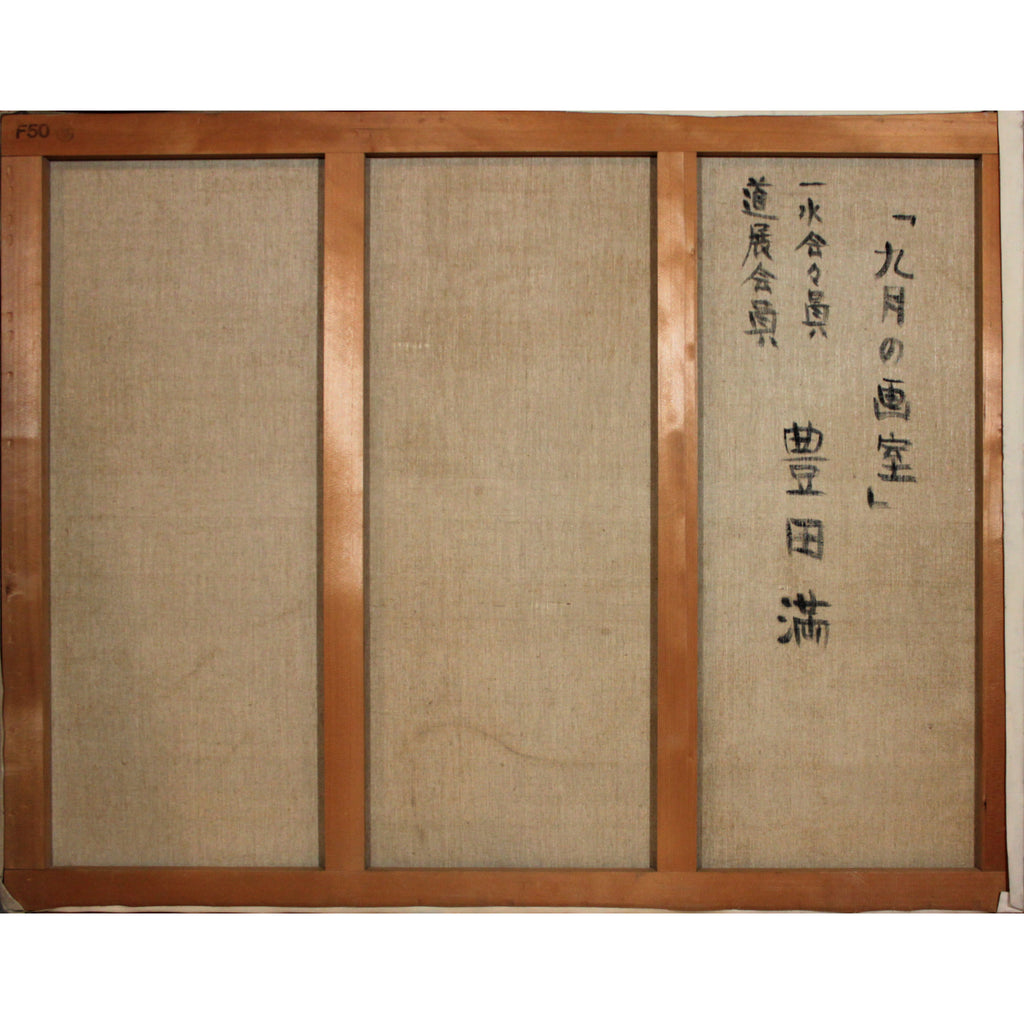 F50
「九月の画室」
一水会々員
道展会員
豊田満